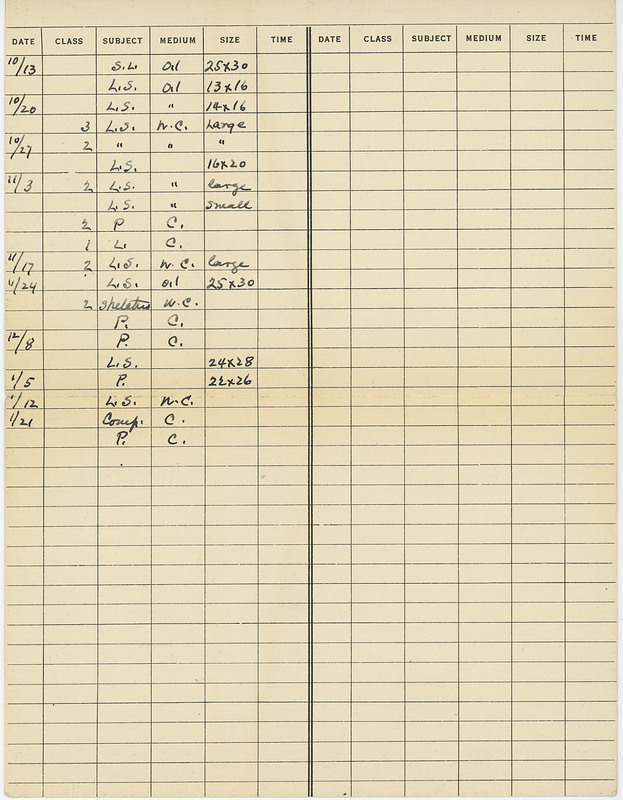 DATE CLASS SUBJECT MEDIUM SIZE TIME DATE CLASS SUBJECT MEDIUM SIZE TIME
10/13 S.L. Oil 25x30
L.S. Oil 13x16
10/20 L.S. " 14x16
3 L.S. W.C. Large
10/27 2 " " "
L.S. 16x20
11/3 2 L.S. " large
L.S. " small
2 P C.
1 L. C.
11/17 2 L.S. W.C. large
11/24 L.S. oil 25x30
2 W.C.
P. C.
12/8 P. C.
L.S. 24x28
1/5 P. 22x26
1/12 L.S. W.C.
1/21 Comp. C.
P. C.